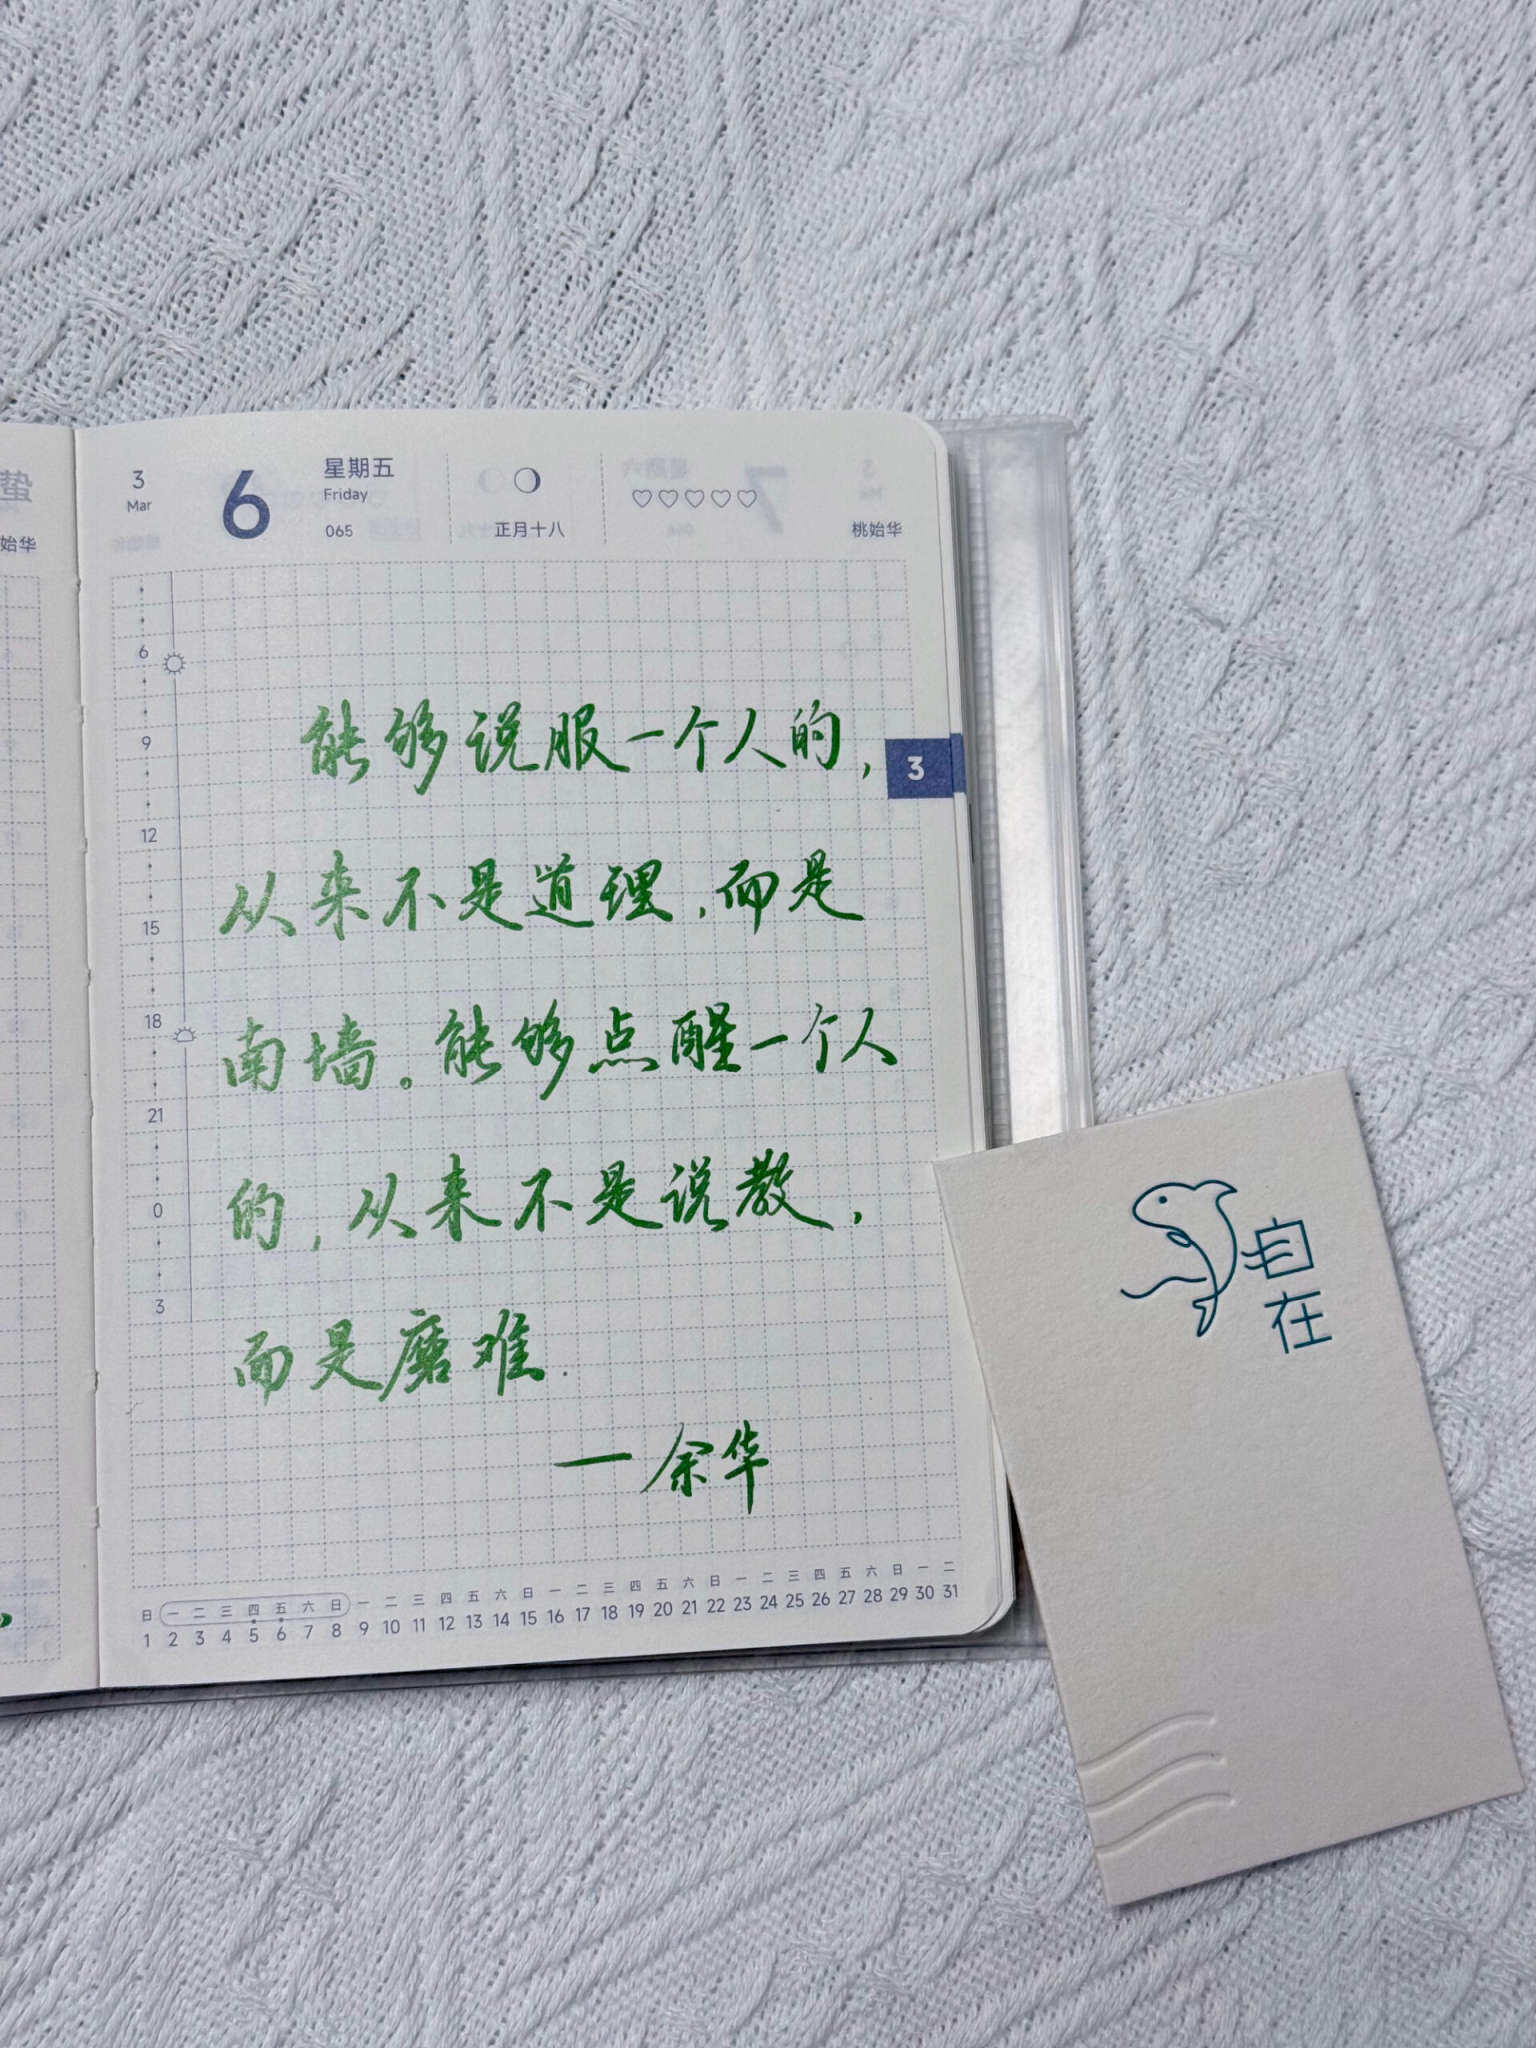 蛰
始华
3
Mar
6
星期五
Friday
065
正月十八
桃始华
6
9
12
15
18
21
0
3
3
能够说服一个人的,
从来不是道理,而是
南墙。能够点醒一个人
的,从来不是说教,
而是磨难.
—余华
日 一 二 三 四 五 六 日 一 二 三 四 五 六 日 一 二 三 四 五 六 日 一 二 三 四 五 六 日 一 二
1 2 3 4 5 6 7 8 9 10 11 12 13 14 15 16 17 18 19 20 21 22 23 24 25 26 27 28 29 30 31
自
在